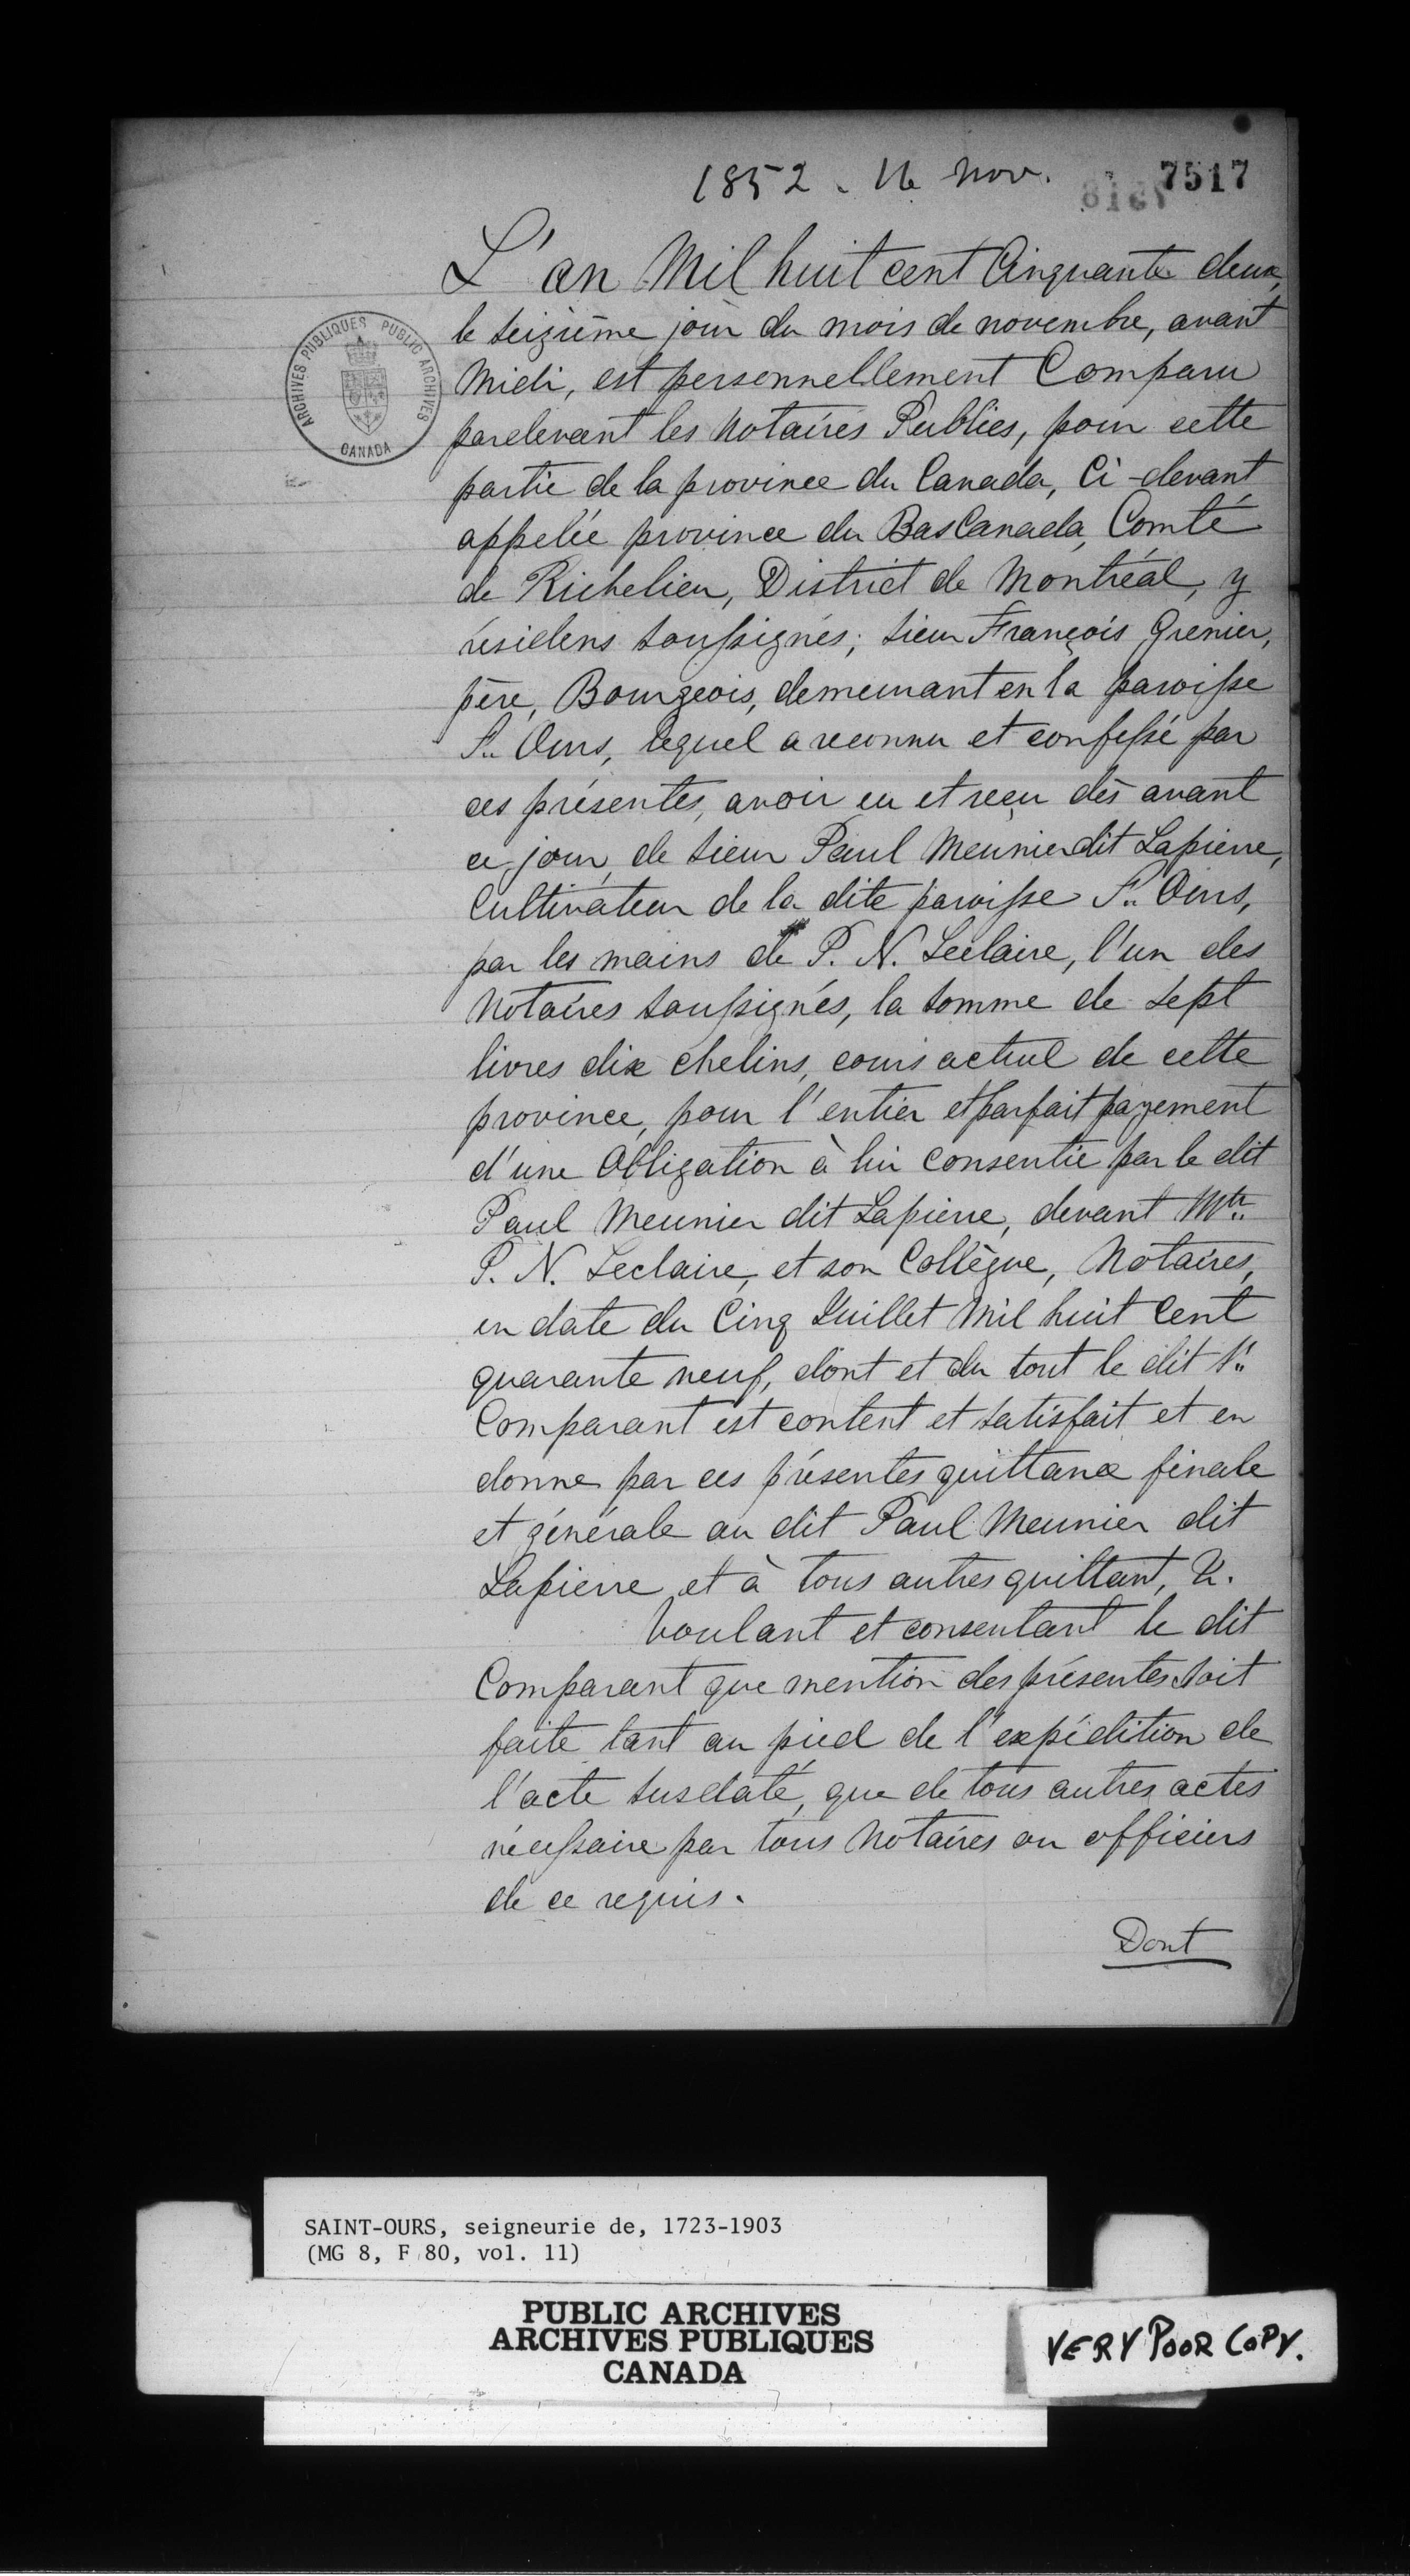 1852. 16 Nov. 7517
L'an Mil huit cent Cinquante deux,
le seizième jour du mois de novembre, avant
Midi, est personnellement Comparu
pardevant les Notaires Publics, pour cette
partie de la province du Canada, Ci-devant
appelée province du Bas Canada, Comté
de Richelieu, District de Montréal, y
résidens soussignés; sieur François Grenier,
père, Bourgeois, demeurant en la paroisse
St. Ours, lequel a reconnu et confessé par
ces présentes, avoir eu et reçu dès avant
ce jour, de sieur Paul Meunier dit Lapierre,
Cultivateur de la dite paroisse St. Ours,
par les mains de P. N. Leclaire, l'un des
Notaires soussignés, la somme de sept
livres dix chelins, cours actuel de cette
province, pour l'entier et parfait payement
d'une Obligation à lui consentie par le dit
Paul Meunier dit Lapierre, devant Mtr.
P. N. Leclaire, et son Collègue, Notaires,
en date du Cinq Juillet Mil huit Cent
quarante neuf, dont et du tout le dit Sr.
Comparant est content et satisfait et en
donne par ces présentes quittance finale
et générale au dit Paul Meunier dit
Lapierre et à tous autres quittant, &.
Voulant et consentant le dit
Comparant que mention des présentes soit
faite tant au pied de l'expédition de
l'acte susdaté, que de tous autres actes
nécessaire par tous Notaires ou officiers
de ce requis.
Dont
ARCHIVES PUBLIQUES PUBLIC ARCHIVES
CANADA
SAINT-OURS, seigneurie de, 1723-1903
(MG 8, F 80, vol. 11)
PUBLIC ARCHIVES
ARCHIVES PUBLIQUES
CANADA
VERY POOR COPY.